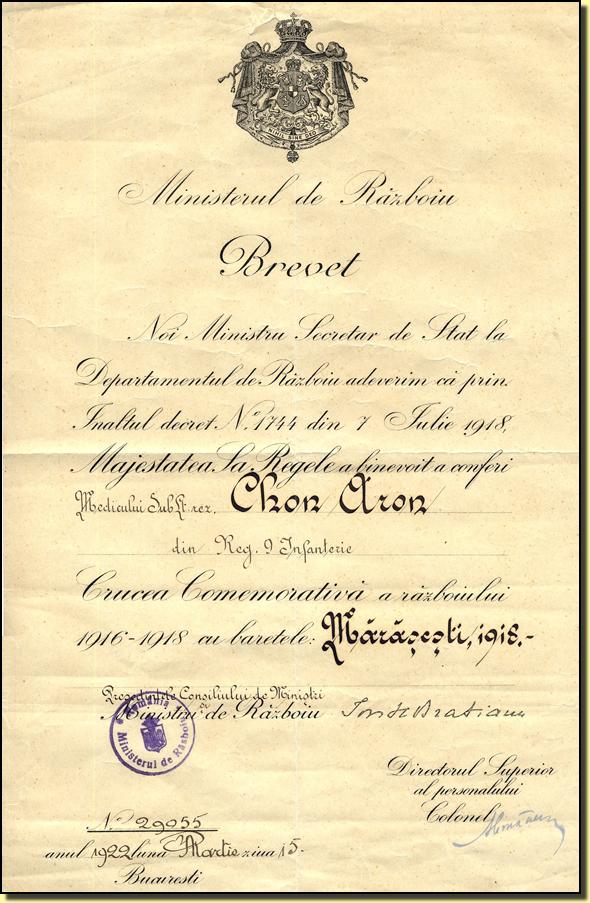 NIHIL SINE DEO
Ministerul de Războiu
Brevet
Noi Ministru Secretar de Stat la
Departamentul de Războiu adeverim că prin
Inaltul decret No. 1744 din 7 Iulie 1918,
Majestatea Sa Regele a binevoit a conferi
Medicului Sub Lt. rez. Chon Aron
din Reg. 9 Infanterie
Crucea Comemorativă a războiului
1916-1918 cu baretele: Mărăşeşti, 1918.-
Preşedintele Consiliului de Miniştri
şi
Ministru de Războiu
România
Ministerul de Răsboiu
Directorul Superior
al personalului
Colonel
No. 29055
anul 1922 luna Martie ziua 15.
Bucuresti